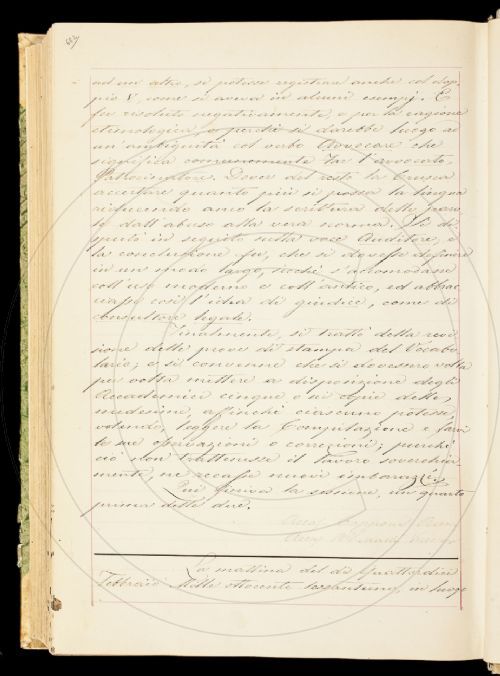 ad un altro, si potesse registrare anche col dop-
pio V, come si aveva in alcuni esempj. E
fu risoluto negativamente, e per la ragione
etimologica, e perchè si darebbe luogo ad
un'ambiguità col verbo Avvocare che
significa comunemente far l'avvocato,
Patrocinatore. Dover del resto la Crusca
accertare quanto più si possa la lingua
riducendo anco la scrittura delle
dall'abuso alla vera norma. Si di-
sputò in seguito sulla voce Auditore, e
la conclusione fu, che si dovesse definire
in un modo largo, sicchè s'accomodasse
coll'uso moderno e coll'antico, ed abbrac-
ciasse così l'idea di giudice, come di
consultore legale.
Finalmente, si trattò della revi-
sione delle prove di stampa del Vocabo-
lario; e si convenne che si dovessero volta
per volta mettere a disposizione degli
Accademici cinque o sei copie delle
medesime, affinchè ciascuno potesse,
volendo, leggere la Compilazione e farvi
le sue osservazioni o correzioni; purchè
ciò non trattenesse il lavoro soverchia-
mente, nè recasse nuovi imbarazzi.
Qui finiva la seduta, un quarto
prima delle dieci.
La mattina del dì Quattordici
Febbraio Mille ottocento sessantuno, in luogo